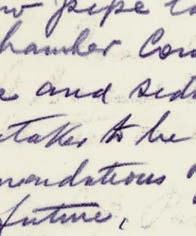 w pipe to
hamber con
e and sedi
taken to be
mendations
future,